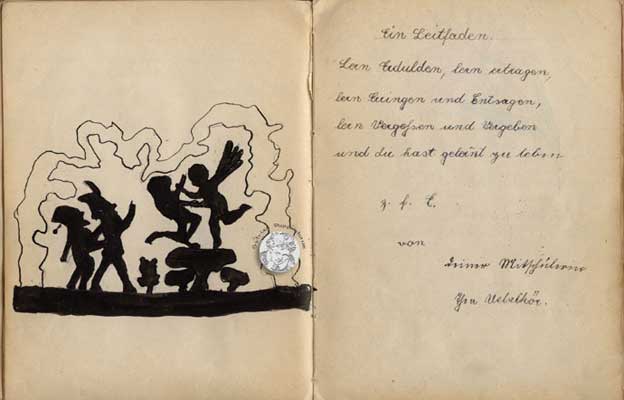 Ein Leitfaden.
Lern Erdulden, lern ertragen,
lern Ringen und Entsagen,
lern Vergeßen und Vergeben
und du hast gelernt zu leben
z. f. E.
von
deiner Mitschülerin